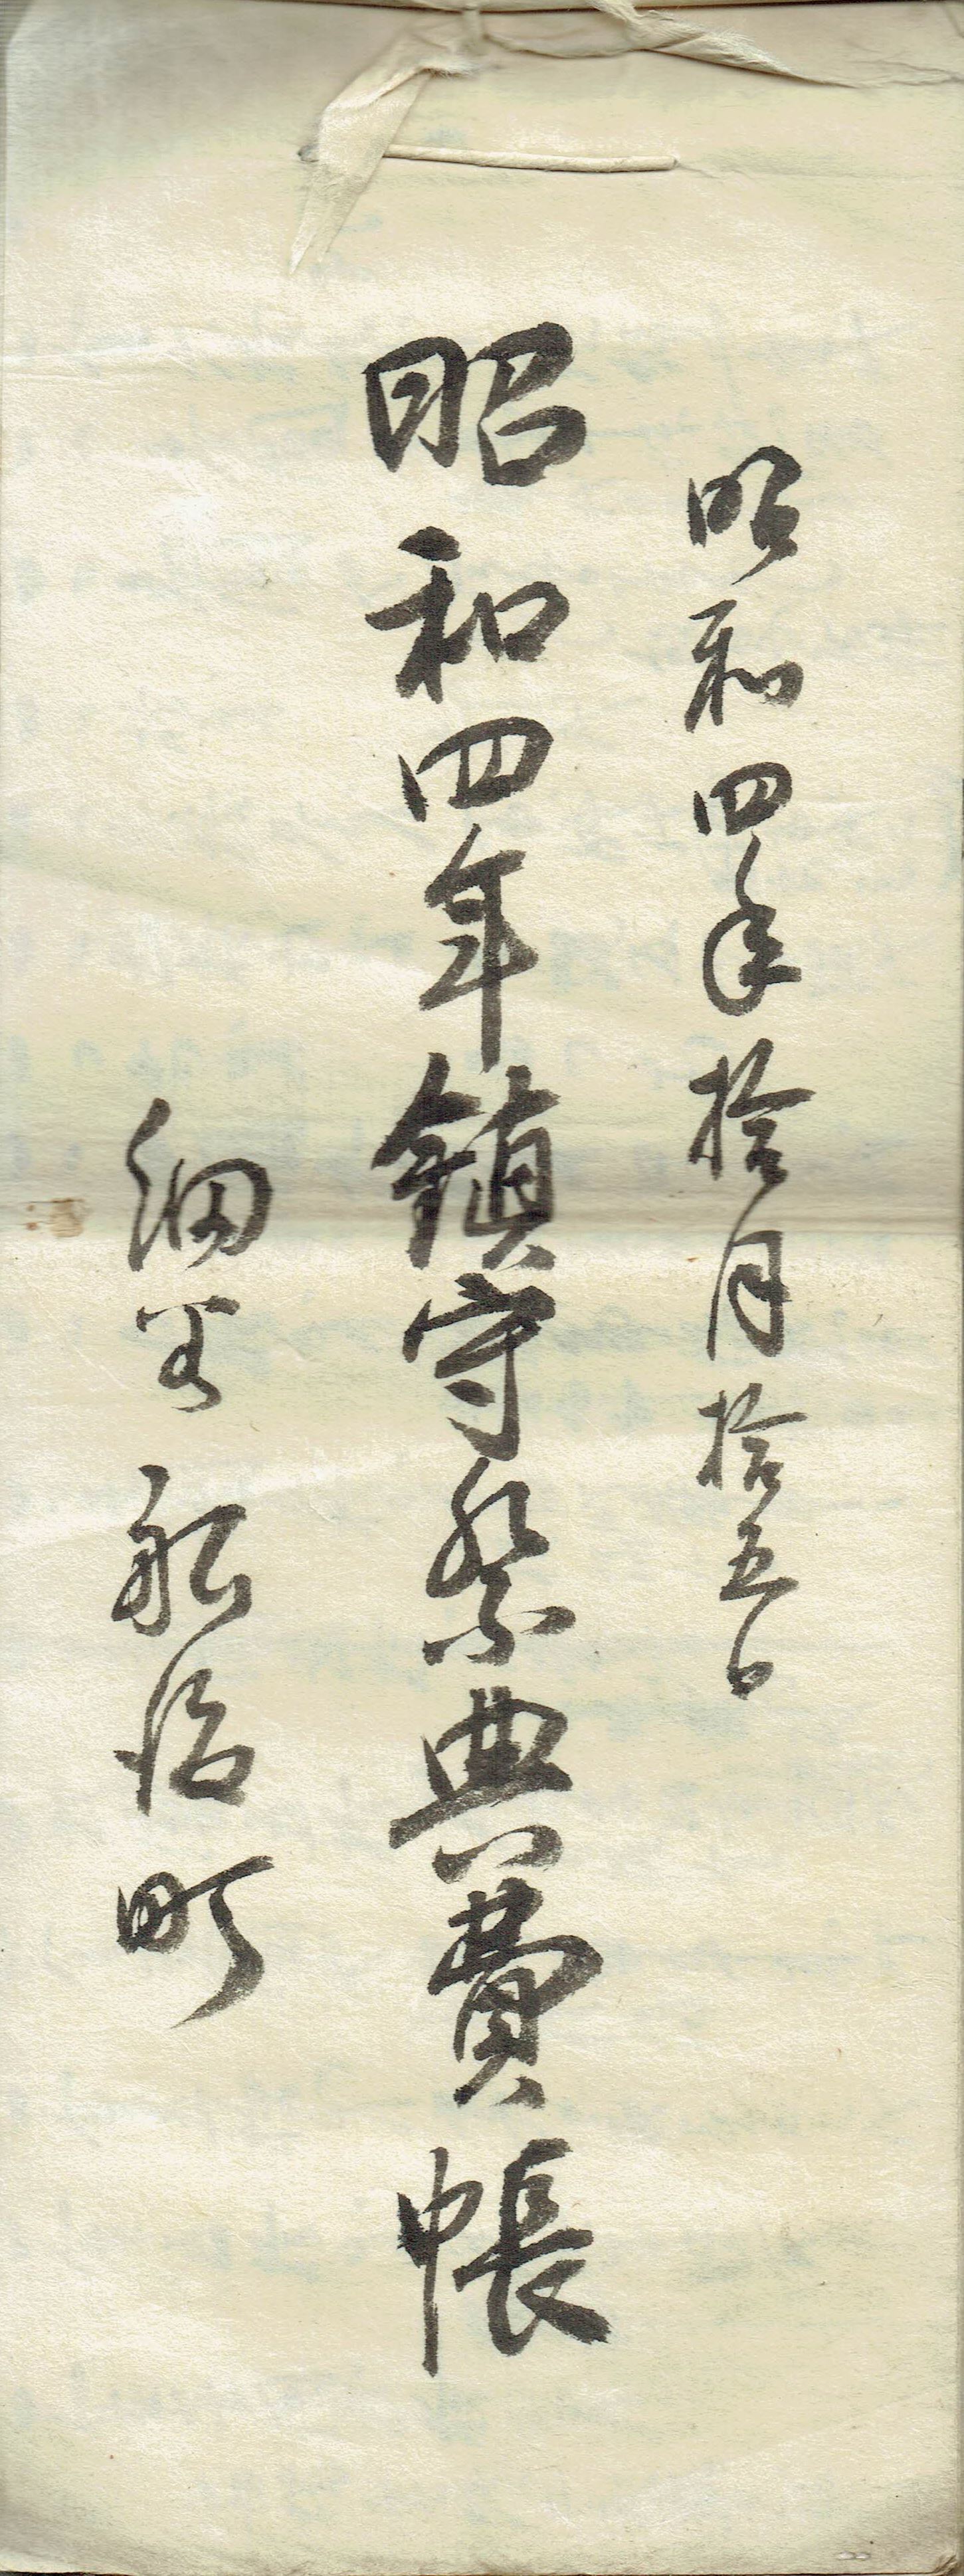 昭和四年拾月拾五日
昭和四年鎮守祭典費帳
細 町